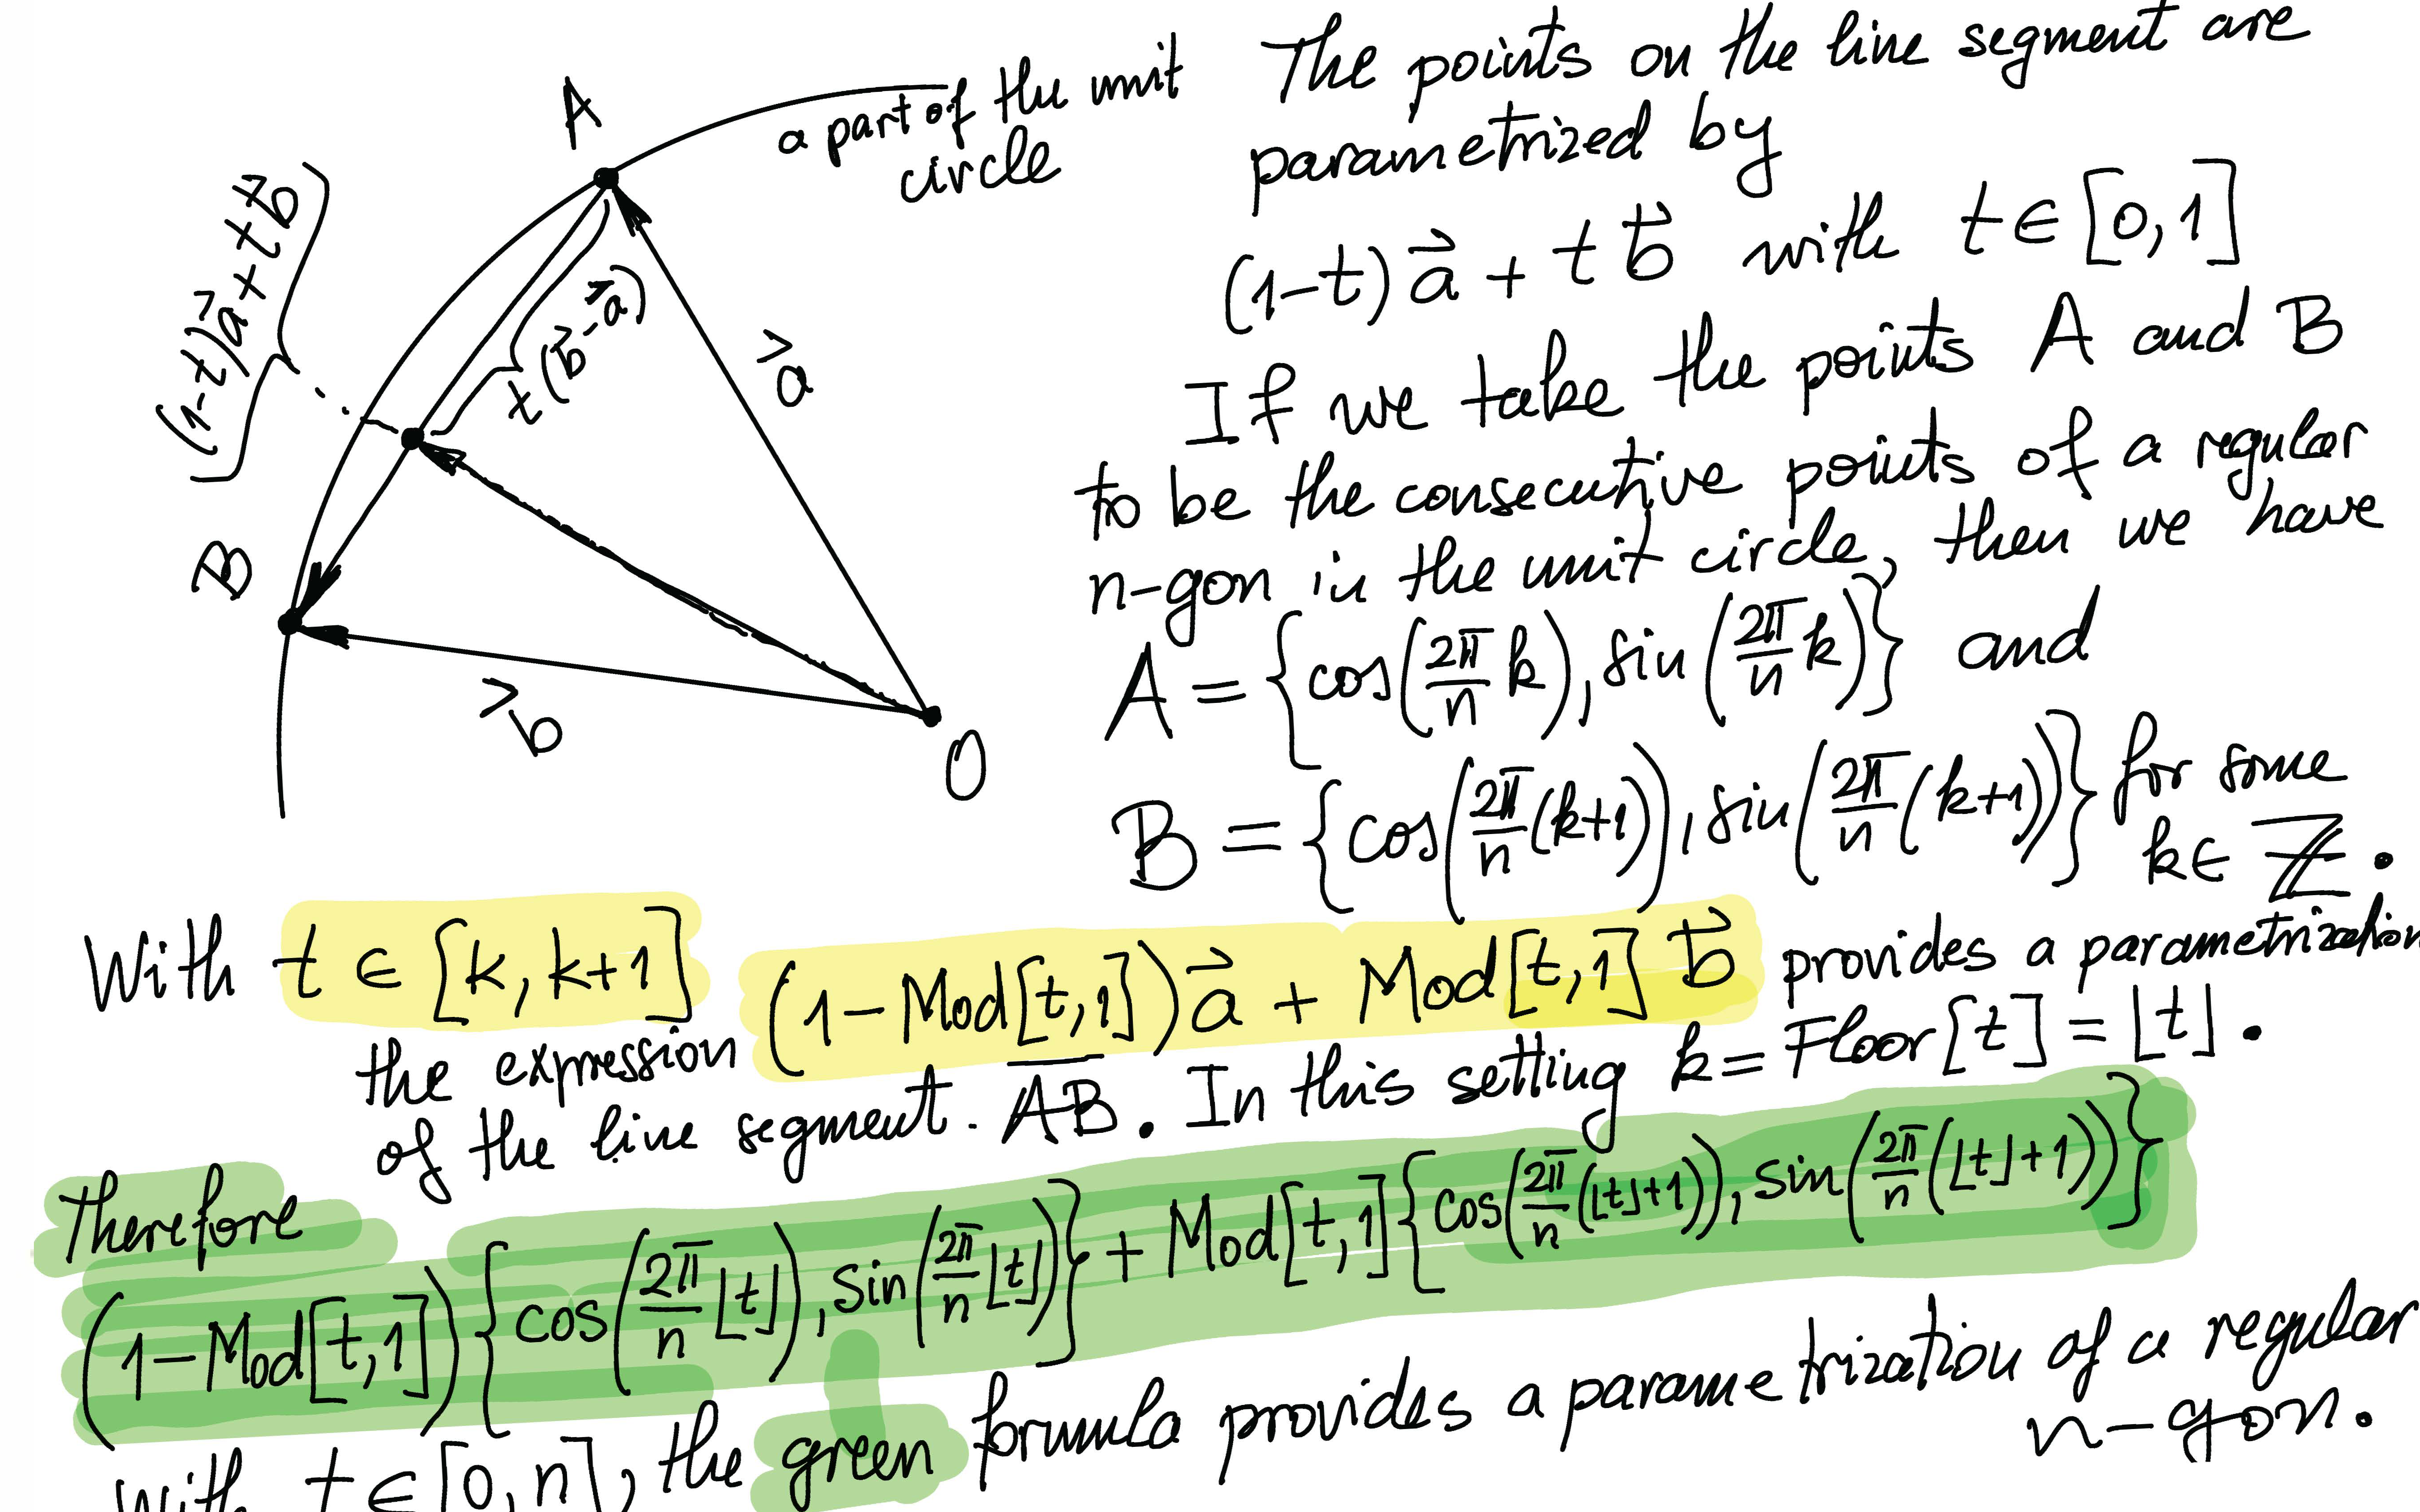 A
a part of the unit
circle
(1-t)a⃗ + t b⃗
t(b⃗-a⃗)
a⃗
B
b⃗
O
The points on the line segment are
parametrized by
(1-t) a⃗ + t b⃗ with t ∈ [0,1]
If we take the points A and B
to be the consecutive points of a regular
n-gon in the unit circle, then we have
A = {cos(2π/n k), sin(2π/n k)} and
B = {cos(2π/n (k+1)), sin(2π/n (k+1))} for some
k ∈ ℤ.
With t ∈ [k, k+1] (1-Mod[t,1]) a⃗ + Mod[t,1] b⃗ provides a parametrization
the expression
of the line segment. A̅B̅. In this setting k = Floor[t] = ⌊t⌋.
Therefore
(1-Mod[t,1]) {cos(2π/n ⌊t⌋), sin(2π/n ⌊t⌋)} + Mod[t,1] {cos(2π/n (⌊t⌋+1)), sin(2π/n (⌊t⌋+1))}
With t ∈ [0,n], the green formula provides a parametrization of a regular
n-gon.